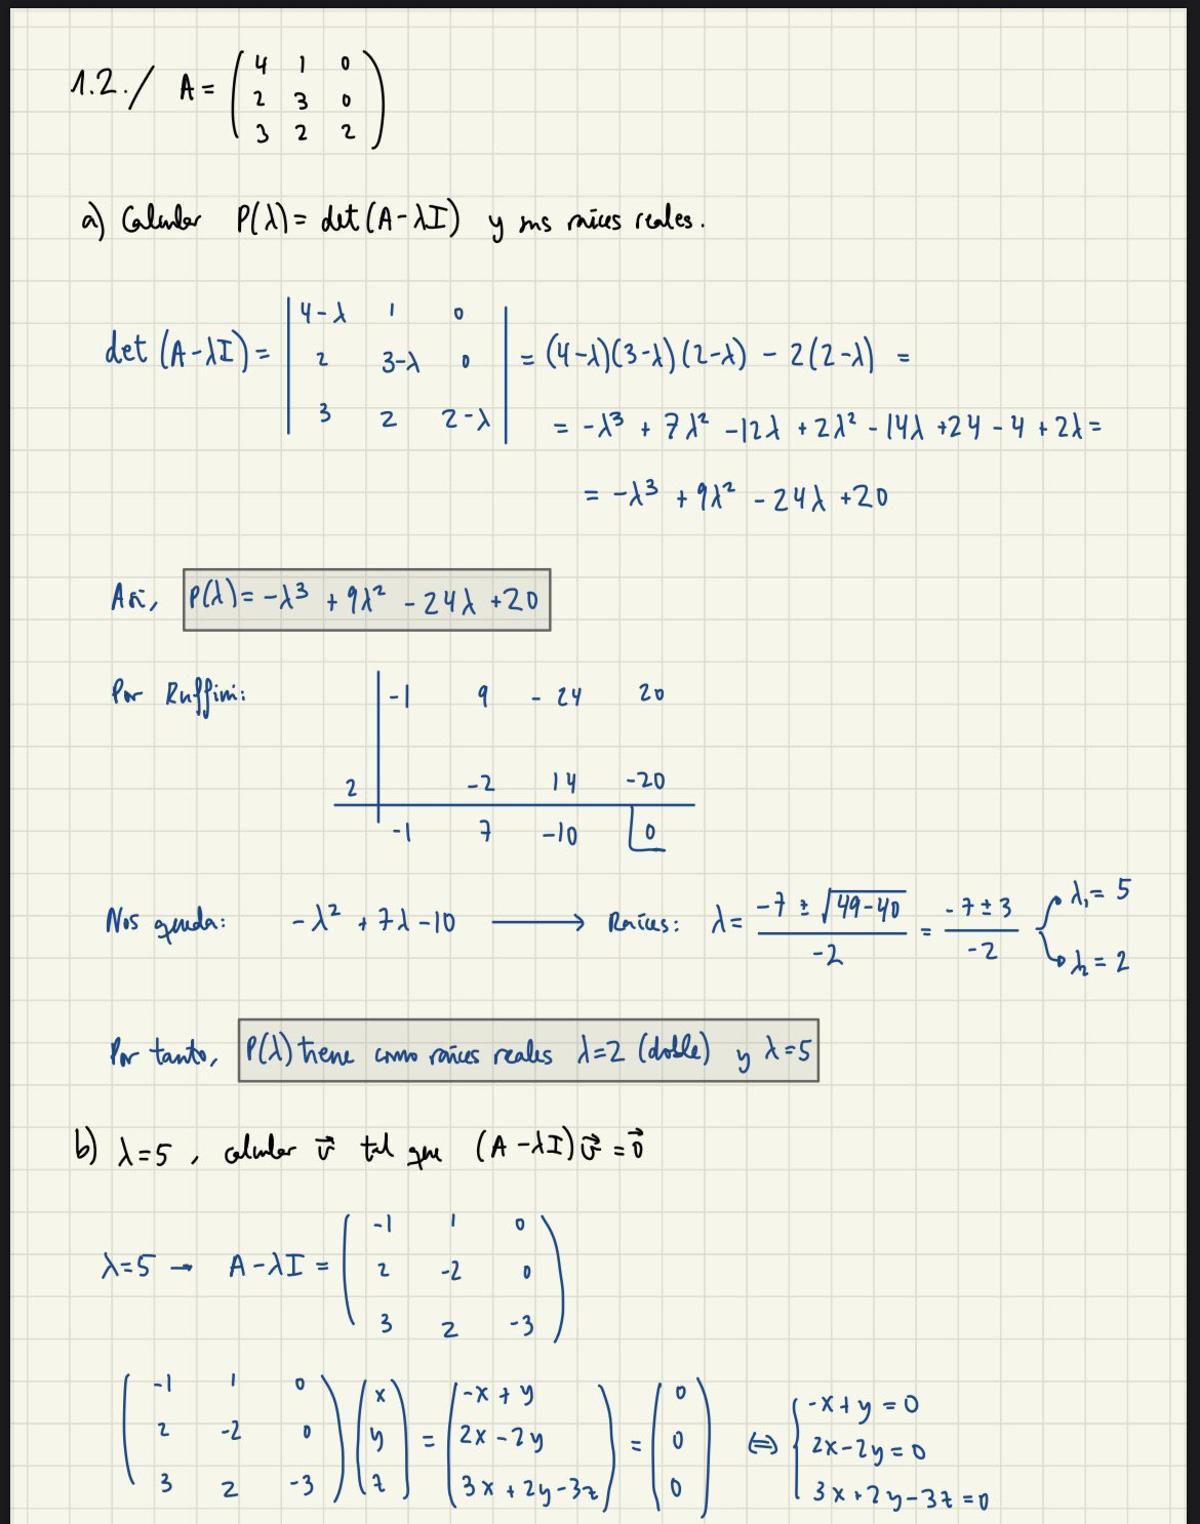 1.2./ A = ( 4 1 0
2 3 0
3 2 2 )
a) Calcular P(λ) = det(A-λI) y sus raíces reales.
det(A-λI) = | 4-λ 1 0
2 3-λ 0
3 2 2-λ | = (4-λ)(3-λ)(2-λ) - 2(2-λ) =
= -λ³ + 7λ² - 12λ + 2λ² - 14λ + 24 - 4 + 2λ =
= -λ³ + 9λ² - 24λ + 20
Así, P(λ) = -λ³ + 9λ² - 24λ + 20
Por Ruffini:
-1 9 -24 20
2 -2 14 -20
-1 7 -10 0
Nos queda: -λ² + 7λ - 10 ⟶ Raíces: λ = (-7 ± √(49-40))/(-2) = (-7 ± 3)/(-2) λ₁ = 5
λ₂ = 2
Por tanto, P(λ) tiene como raíces reales λ=2 (doble) y λ=5
b) λ=5, calcular v⃗ tal que (A-λI)v⃗ = 0⃗
λ=5 → A-λI = ( -1 1 0
2 -2 0
3 2 -3 )
( -1 1 0
2 -2 0
3 2 -3 ) ( x
y
z ) = ( -x+y
2x-2y
3x+2y-3z ) = ( 0
0
0 ) ⇔ { -x+y=0
2x-2y=0
3x+2y-3z=0